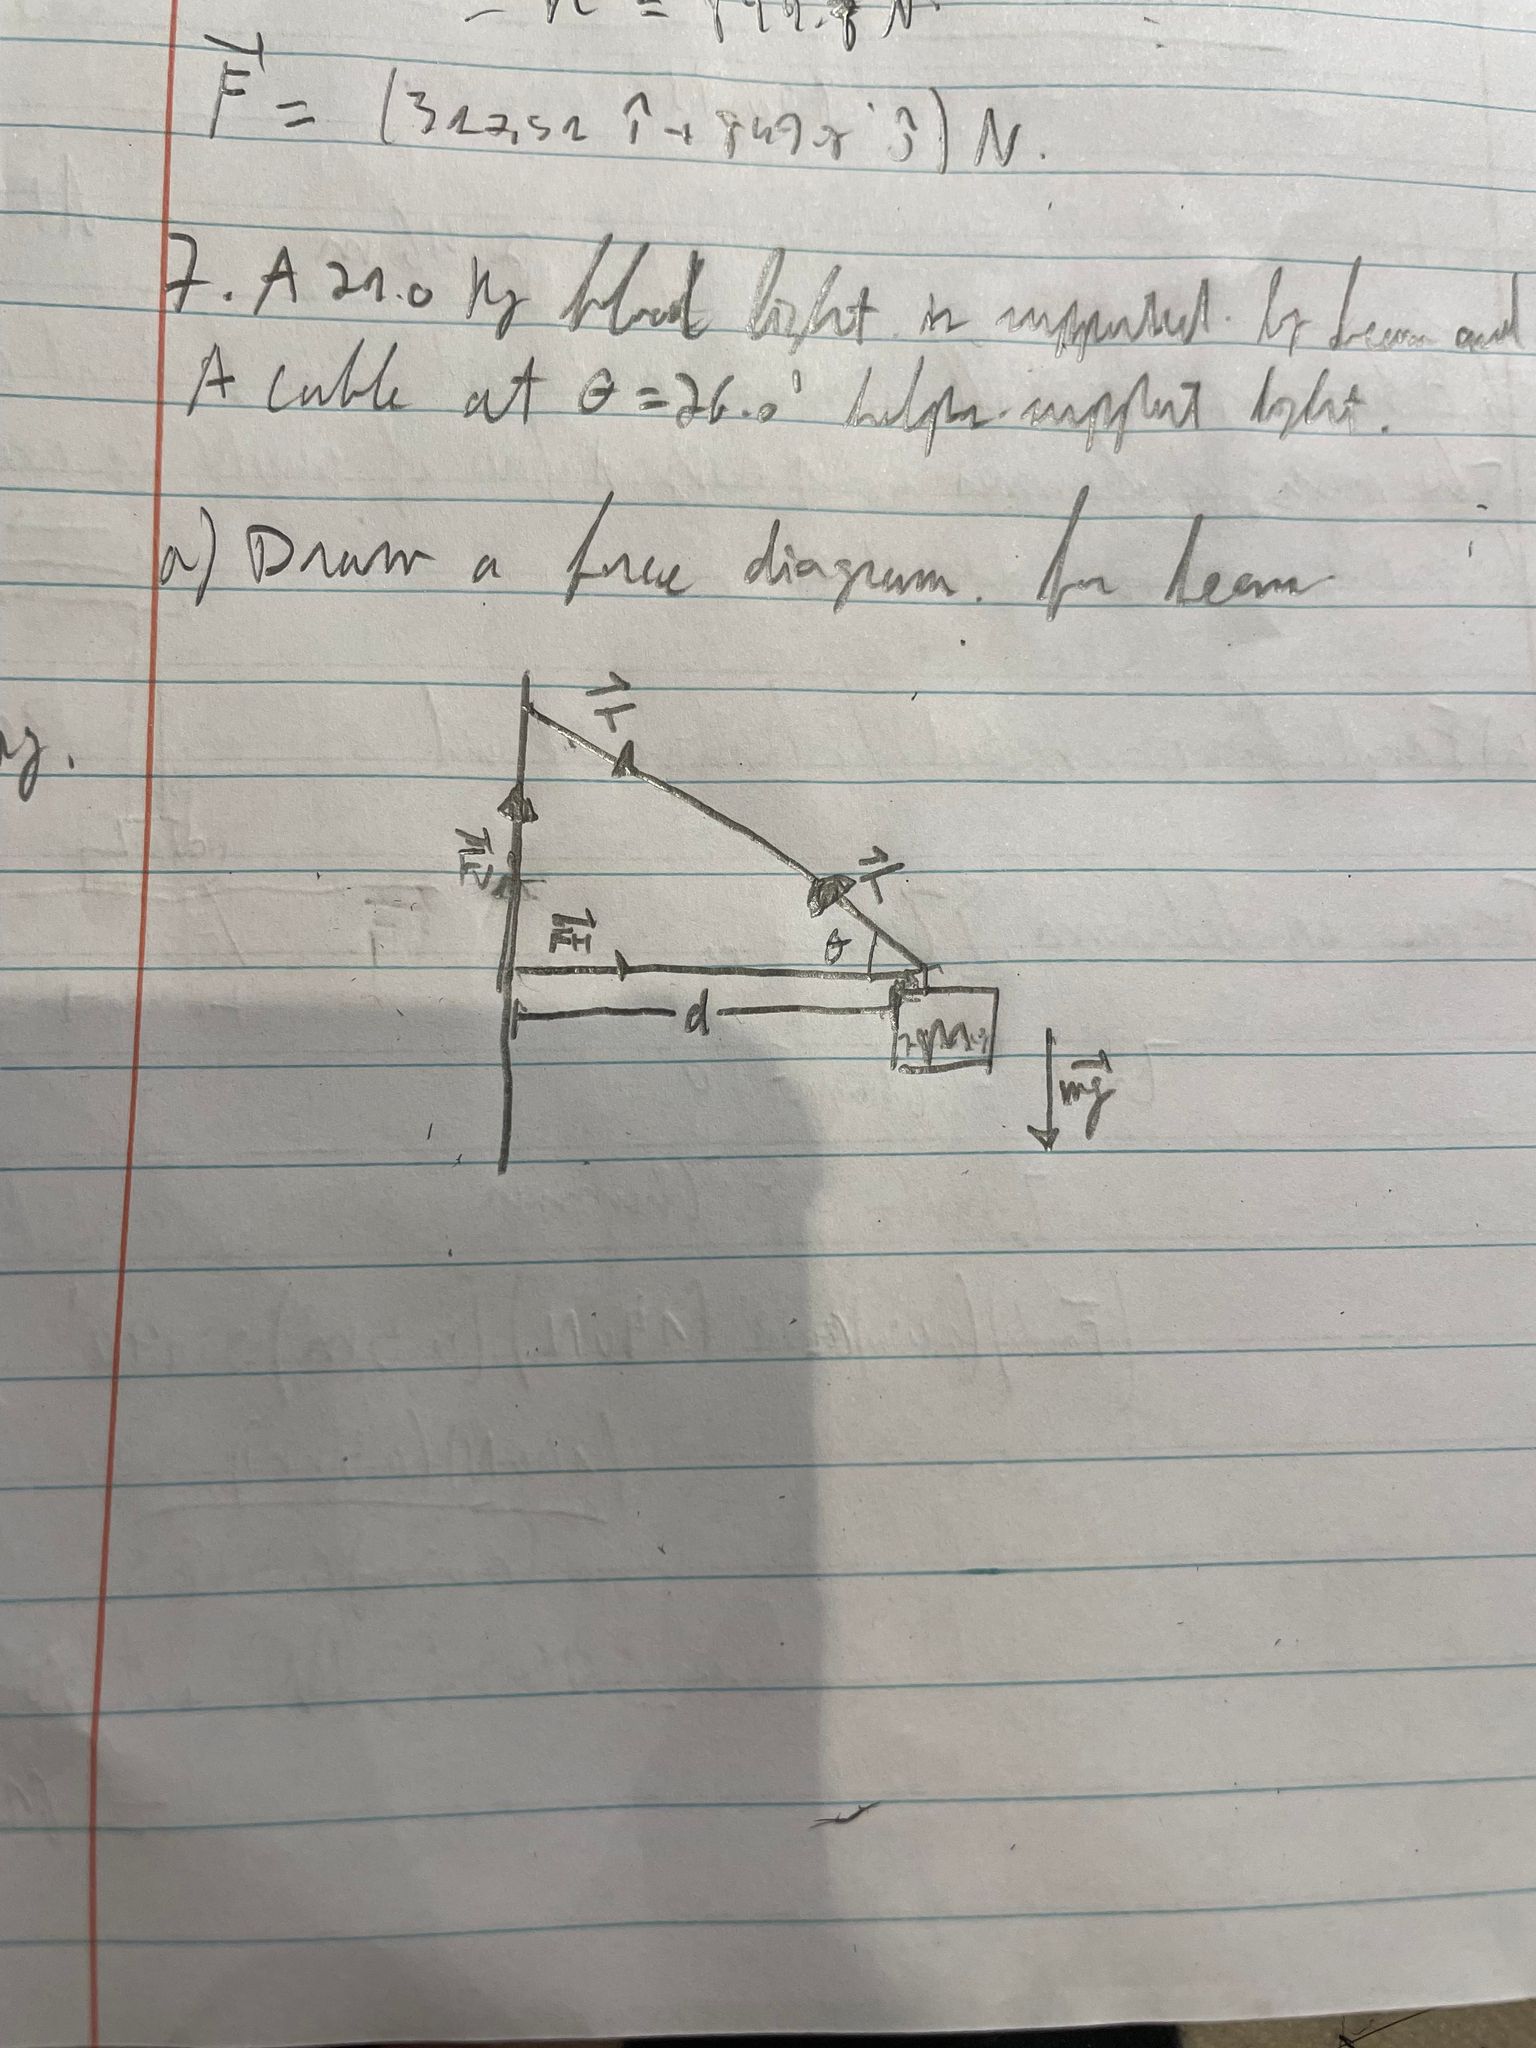 F = (312,51 î + 849.8 ĵ) N.
7. A 21.0 kg flood light is supported by beam and
A cable at θ = 26.0° helps support light.
a) Draw a force diagram. for beam
T
T
θ
d
mg